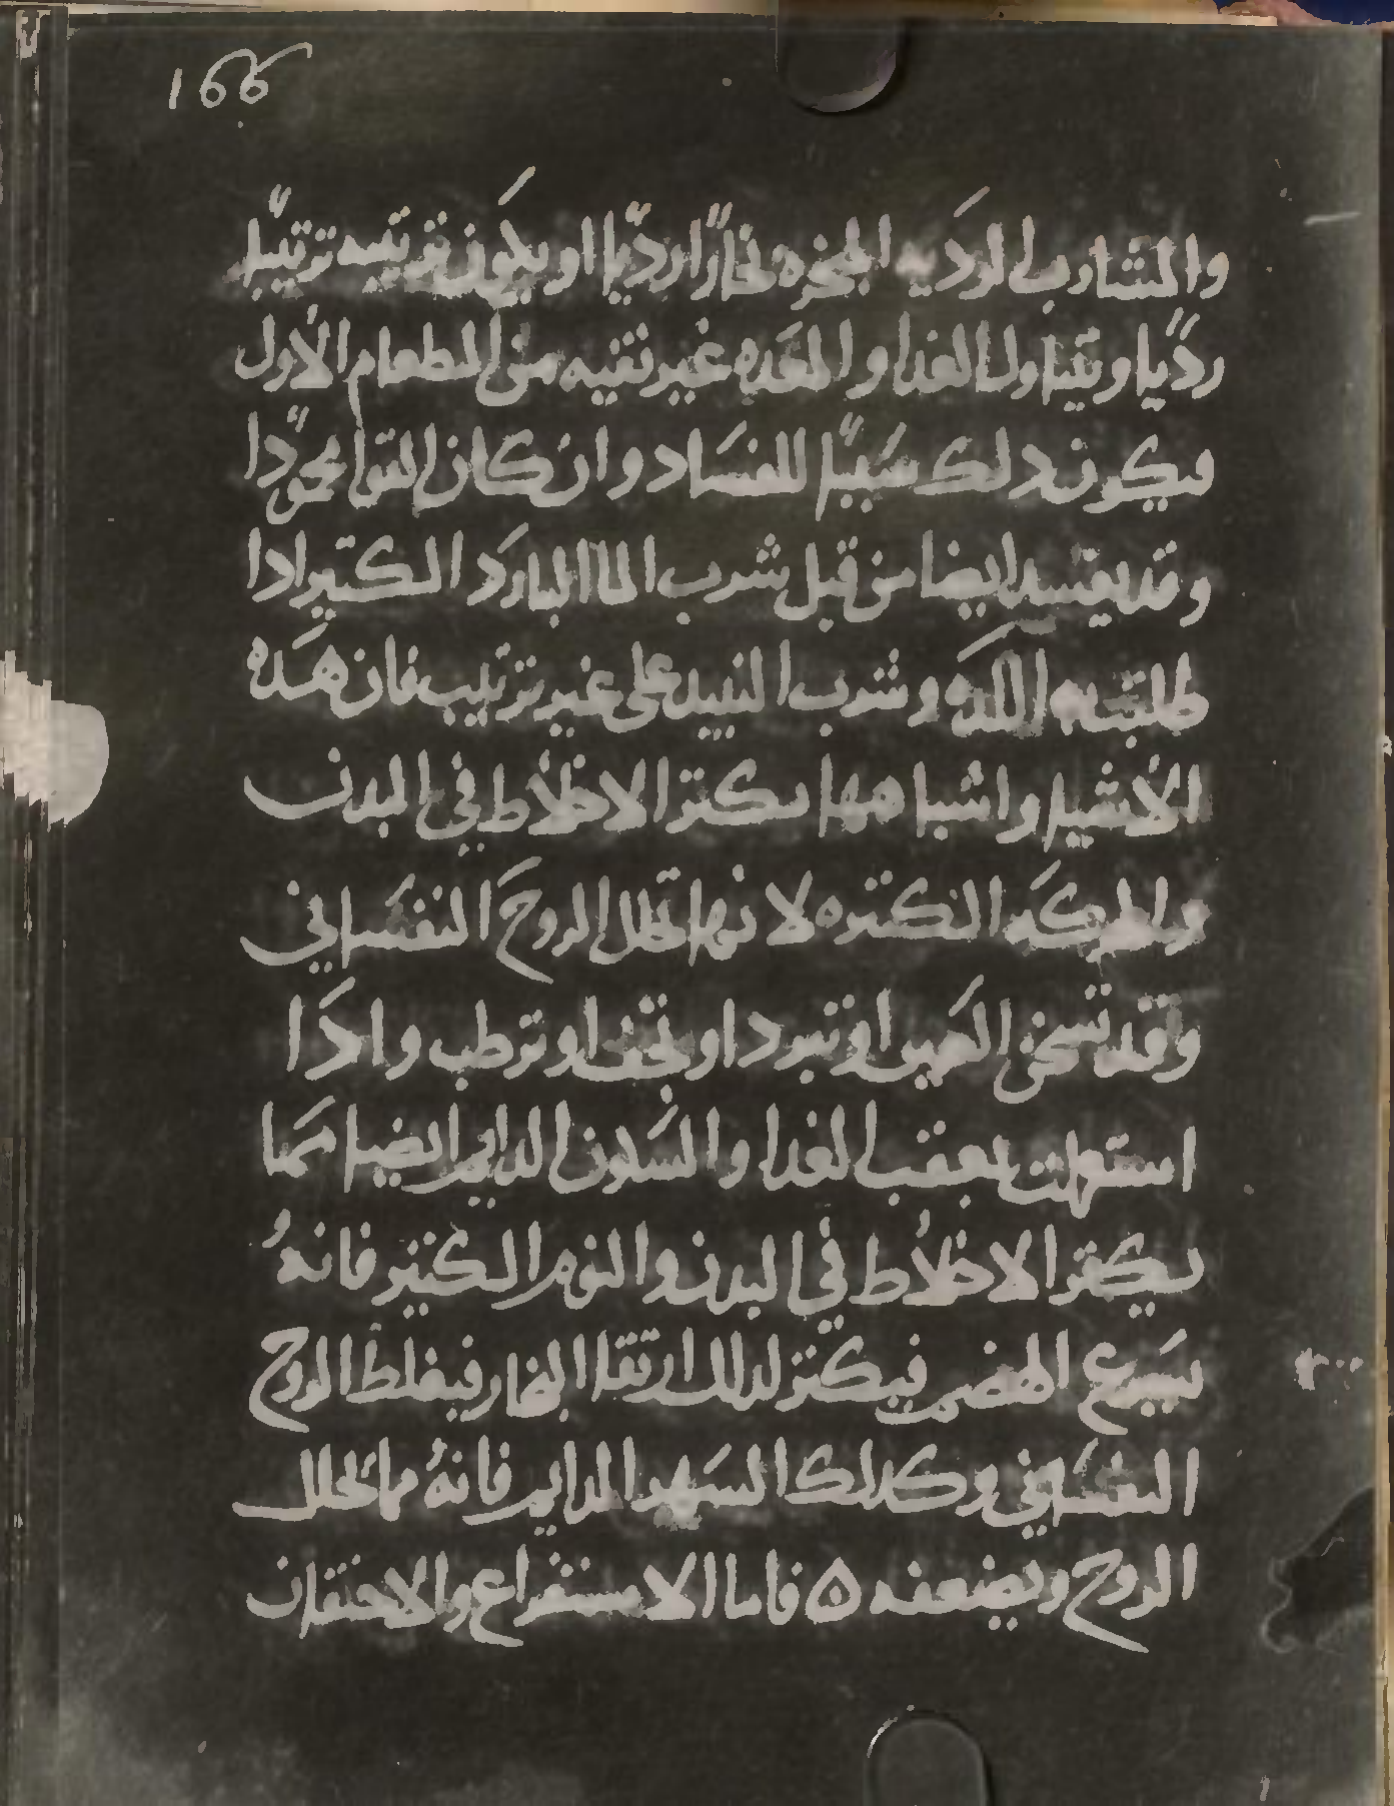 166
والمشارب الرديه المبخره بخارًا رديًا او يكون ترتيبه ترتيبًا
رديًا ويتناول الغدا والمعده غير نقيه من الطعام الاول
فيكون دلك سببًا للفساد وان كان الغدا محمودًا
وقد يفسد ايضا من قبل شرب الما البارد الكتير ادا
طلبت به اللده وشرب النبيد على غير ترتيب فان هده
الاشيا واشباهها يكتر الاخلاط في البدن
والحركه الكتيره لانها تحلل الروح النفساني
وقد تسخن العين او تبرد او تجفف او ترطب وادا
استعملت بعقب الغدا والسكون الدايم ايضا مما
يكتر الاخلاط في البدن والنوم الكتير فانهُ
يسرع الهضم فيكتر لدلك ارتقا البخار فيغلظ الروح
النفساني وكدلك السهر الدايم فانهُ مما يحلل
الروح ويضعفه ٥ فاما الاستفراغ والاحتقان